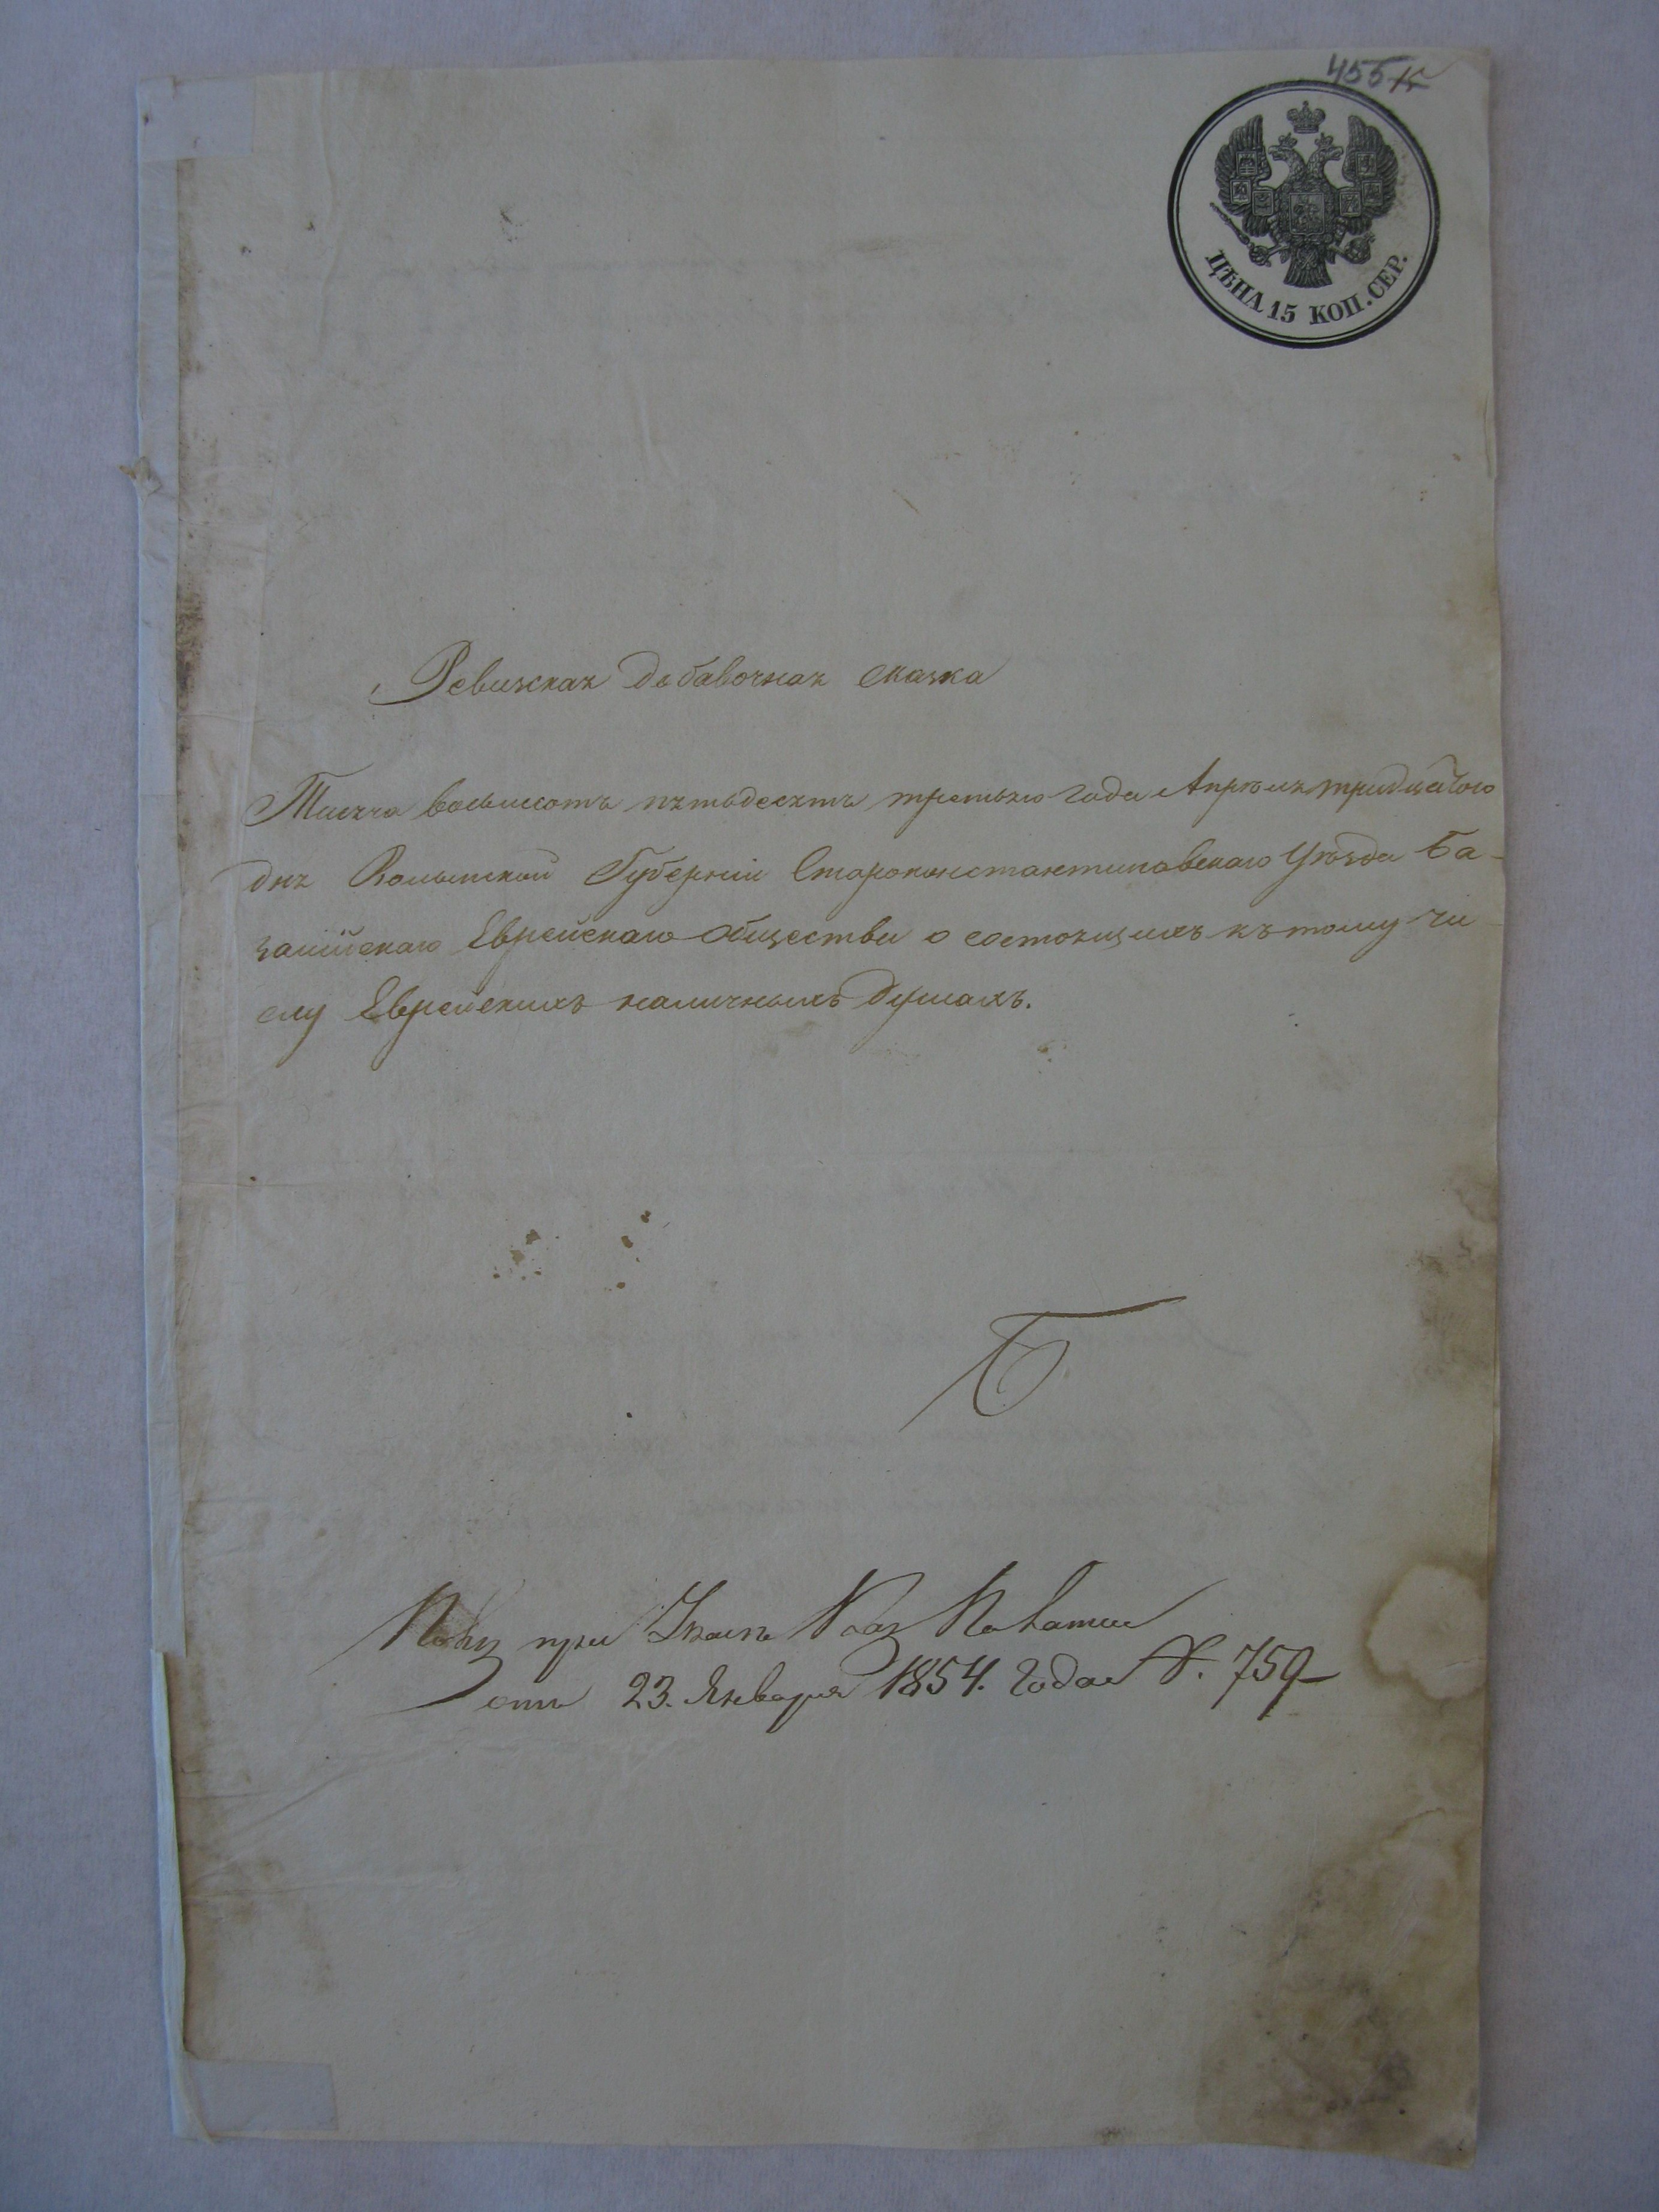 455
ЦѢНА 15 КОП. СЕР.
Ревизская добавочная сказка
Тысяча восьмсотъ пятьдесятъ третьяго года Апрѣля тридцатого
дня Волынской Губерніи Староконстантиновскаго Уѣзда Ба-
заліискаго Еврейскаго общества о состоящихъ къ тому чи-
слу Еврейскихъ наличныхъ душахъ.
Б
при Указѣ Каз Палаты
отъ 23. Января 1854. года №. 759